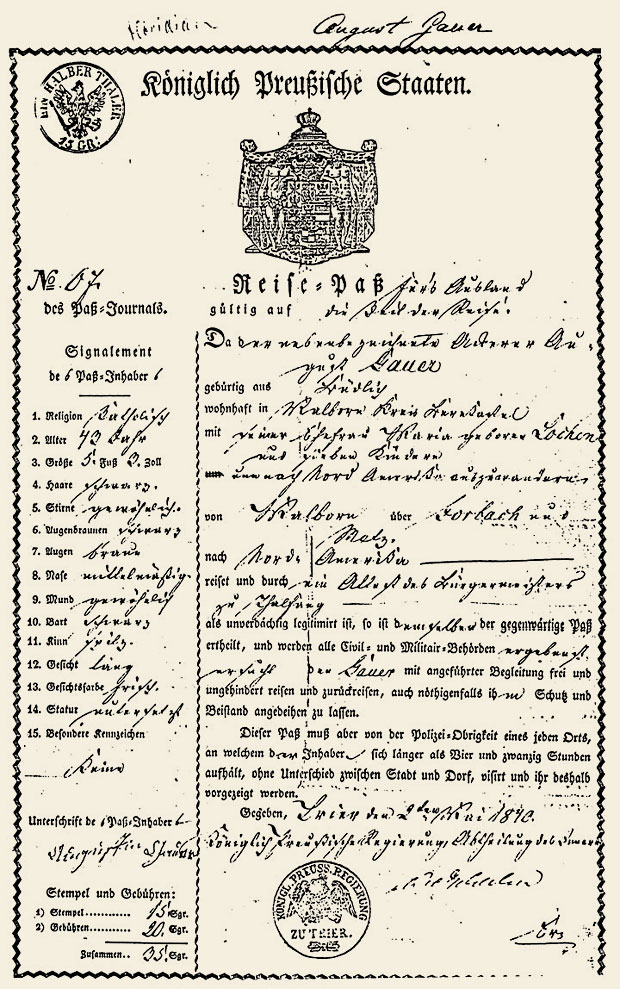 August Gauer
EIN HALBER THALER
15 GR:
Königlich Preußische Staaten.
No. 67
des Paß-Journals.
Signalement
des Paß-Inhabers
1. Religion Katholisch
2. Alter 43 Jahr
3. Größe 5 Fuß 3 Zoll
4. Haare schwarz.
5. Stirne gewöhnlich.
6. Augenbraunen schwarz
7. Augen braun
8. Nase mittelmäßig.
9. Mund gewöhnlich
10. Bart schwarz
11. Kinn spitz.
12. Gesicht lang
13. Gesichtsfarbe frisch.
14. Statur untersetzt
15. Besondere Kennzeichen
Keine
Unterschrift des Paß-Inhabers
Stempel und Gebühren:
1) Stempel............ 15 Sgr.
2) Gebühren........... 20 Sgr.
Zusammen.. 35 Sgr.
Reise-Paß fürs Ausland
gültig auf die Zeit der Reise.
Da der nebenbezeichnete Ackerer Au-
gust Gauer
gebürtig aus
wohnhaft in Malborn Kreis Berncastel
mit seiner Ehefrau Maria geborene Lochen
und sieben Kindern
um nach Nord Amerika auszuwandern
von Malborn über Forbach und
Metz.
nach Nord Amerika
reiset und durch ein Attest des Bürgermeisters
zu Thalfang
als unverdächtig legitimirt ist, so ist demselben der gegenwärtige Paß
ertheilt, und werden alle Civil- und Militair-Behörden ergebenst
ersucht den Gauer mit angeführter Begleitung frei und
ungehindert reisen und zurückreisen, auch nöthigenfalls ihm Schutz und
Beistand angedeihen zu lassen.
Dieser Paß muß aber von der Polizei-Obrigkeit eines jeden Orts,
an welchem der Inhaber sich länger als Vier und zwanzig Stunden
aufhält, ohne Unterschied zwischen Stadt und Dorf, visirt und ihr deshalb
vorgezeigt werden.
Gegeben, Trier den Mai
Königlich Preußische Regierung, Abtheilung des Innern
KÖNIGL. PREUSS. REGIERUNG
ZU TRIER.